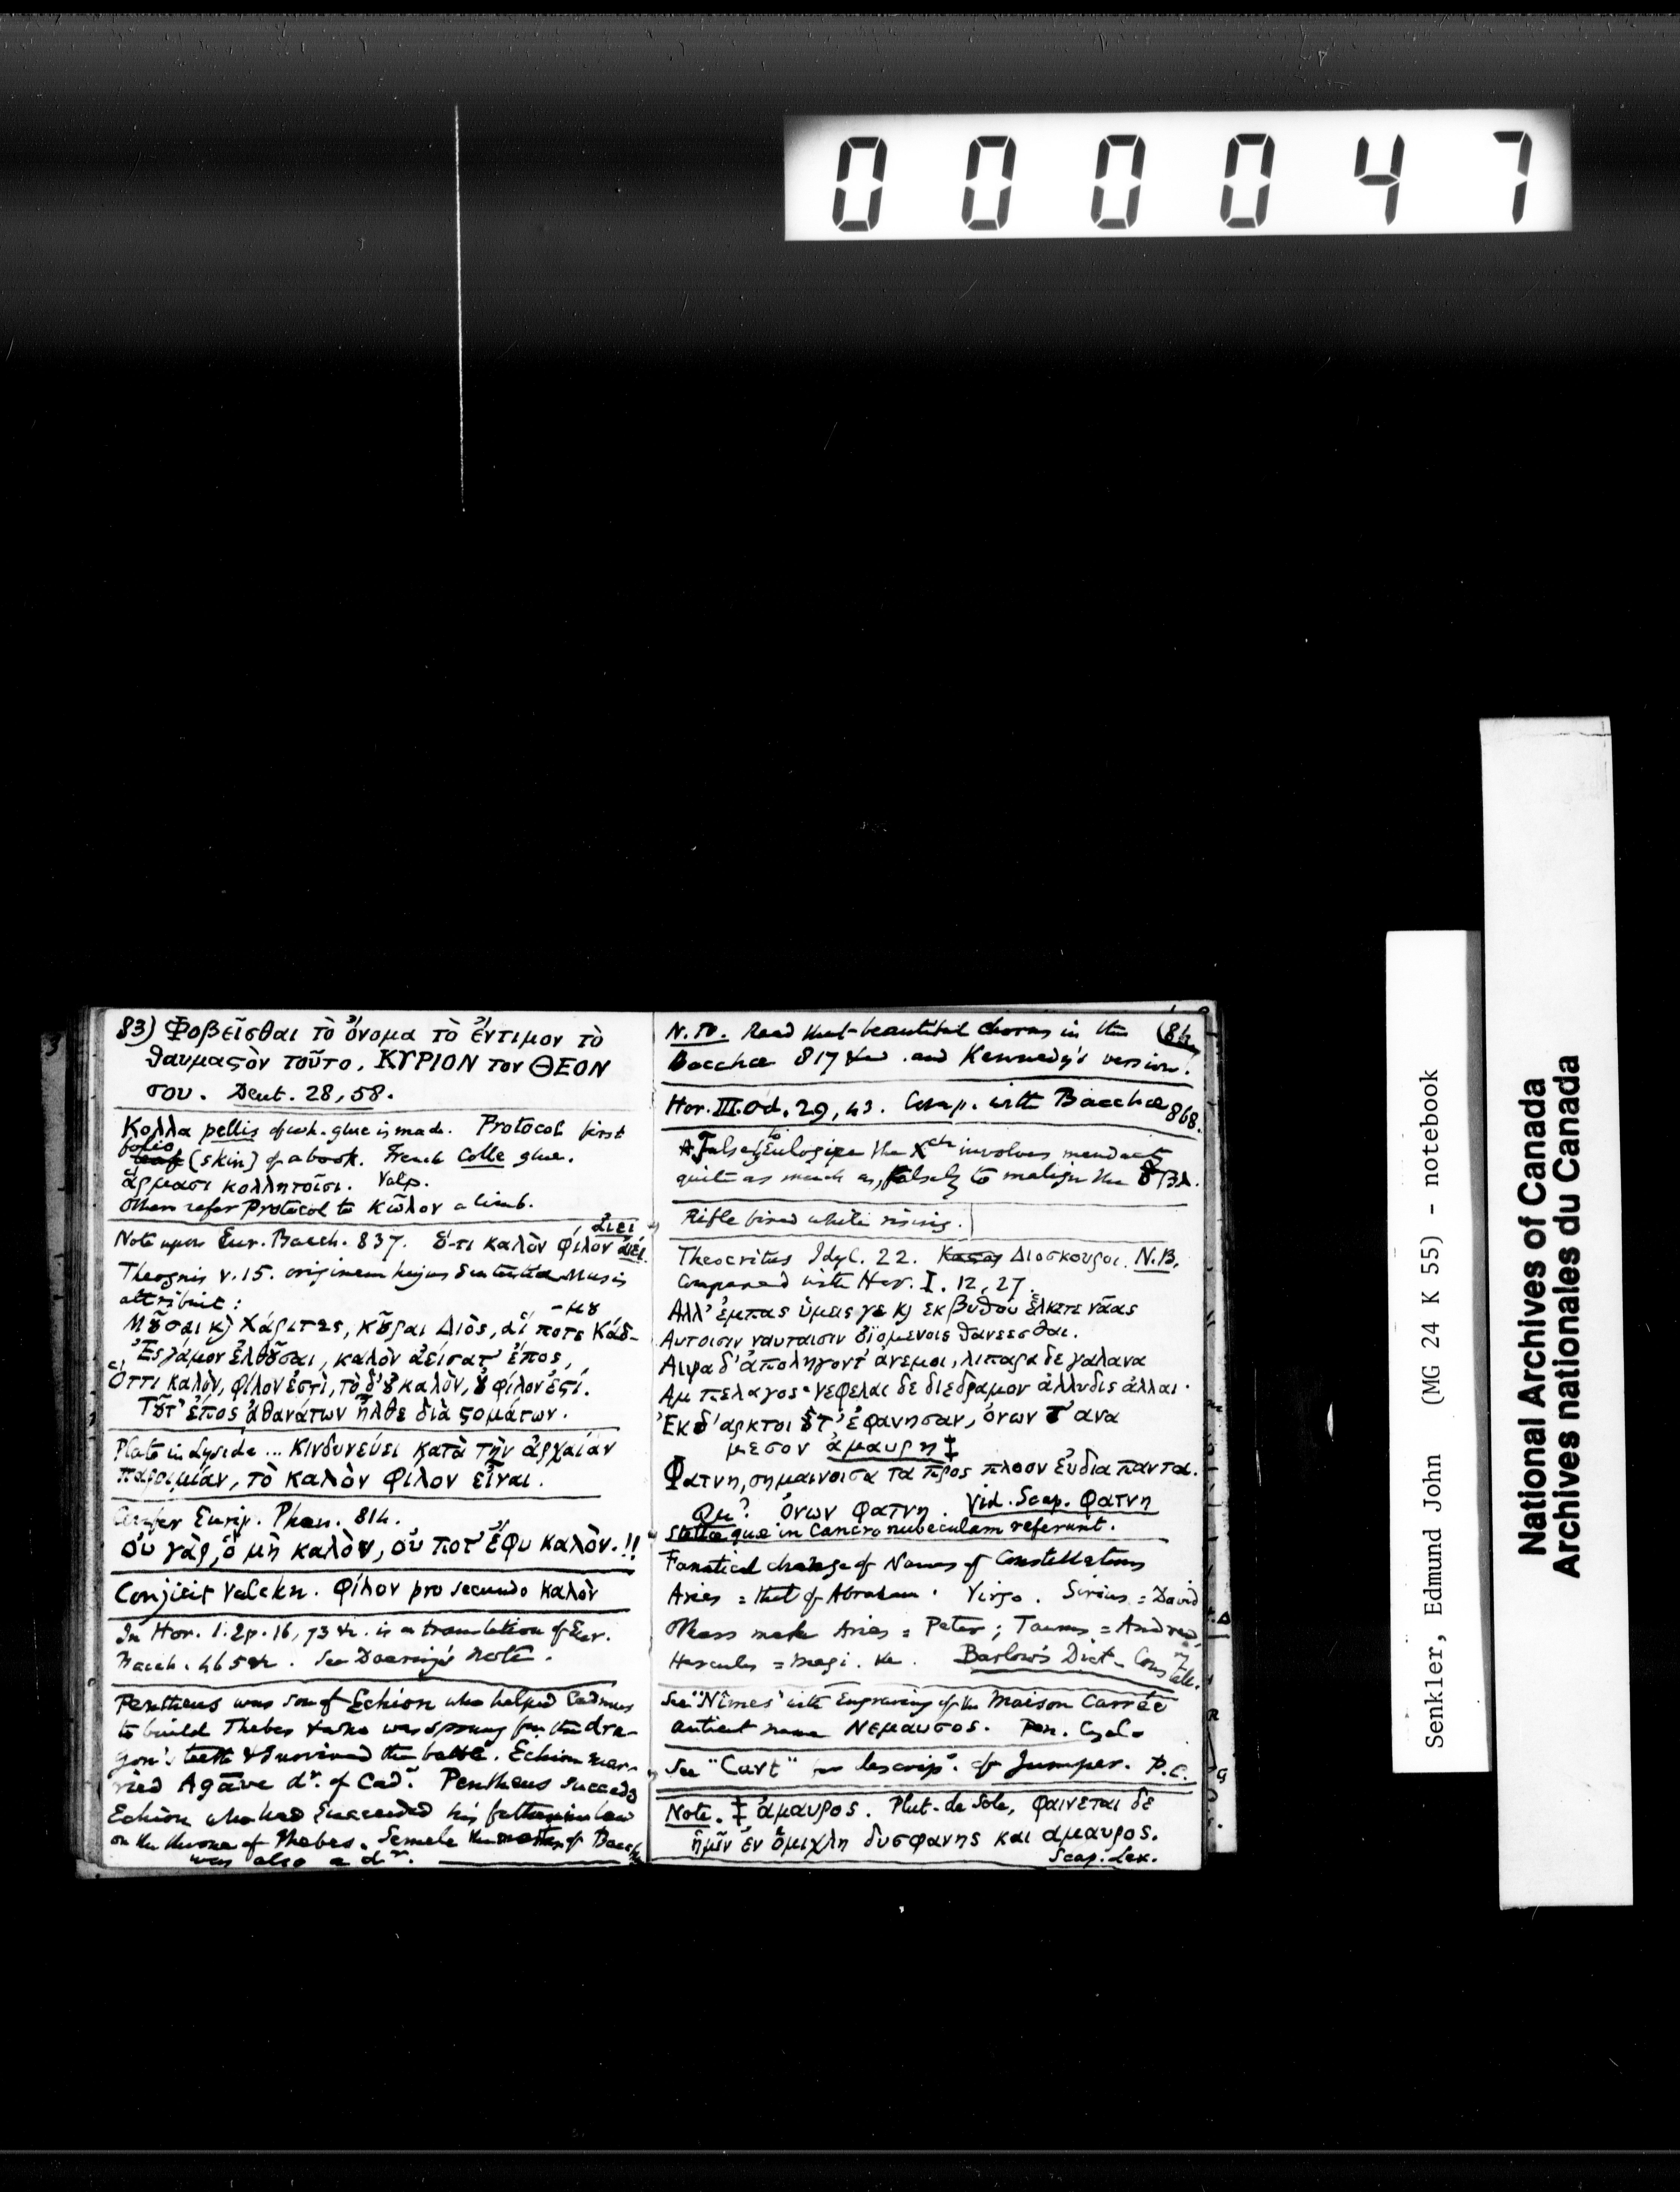 000047
83) Φοβεῖσθαι τὸ ὄνομα τὸ ἔντιμον τὸ
θαυμαϛὸν τοῦτο, ΚΥΡΙΟΝ τον ΘΕΟΝ
σου. Deut. 28,58.
Κολλα pellis of wh. glue is made. Protocol first
folio
leaf (skin) of a book. French Colle glue.
ἅρμασι κολλητοῖσι. Valp.
Others refer Protocol to Κῶλον a limb.
ἀιεὶ
Note upon Eur. Bacch. 837. ὅ-τι καλὸν φίλον ἀιεί.
Theognis v.15. originem hujus Musis
attribuit:
-μȣ
Μȣ̃σαι κỳ Χάριτες, κȣ̃ραι Διὸς, αἵ ποτε Κάδ-
Ἐς γάμον ἐλθȣ̃σαι, καλὸν ἀείσατ' ἔπος,
Ὅττι καλὸν, φίλον ἐστὶ, τὸ δ'ȣ̓ καλὸν, ȣ̓ φίλον ἐϛί.
Τȣ̃τ' ἔπος ἀθανάτων ἦλθε διὰ ϛομάτων.
Plato in Lyside ... Κινδυνεύει κατὰ τὴν ἀρχαίαν
παροιμίαν, τὸ καλὸν φίλον εἶναι.
Confer Eurip. Phœn. 814.
ὀυ γὰρ, ὃ μὴ καλὸν, ὀυ ποτ' ἔφυ καλὸν.!!
Conjicit Valckn. φίλον pro secundo καλὸν
In Hor. 1. Ep. 16, 73 &c. is a translation of Eur.
Bacch. 465 &c. See Doering's note.
Pentheus was son of Echion who helped Cadmus
to build Thebes & who was sprung fm. the dra-
gon's teeth & survived the battle. Echion mar-
ried Agāve dr. of Cad. Pentheus succeeds
Echion who had succeeded his father in law
on the throne of Thebes. Semele the mother of Bacch
was also a dr.
N.B. Read that beautiful chorus in the (84
Bacchæ 817 &c and Kennedy's version.
Hor. III. Od. 29, 43. Comp. with Bacchæ 868.
to
A Falsely Eulogize the involves
quite as much as, falsely to malign the
Rifle bired while rising.
Theocritus Idyl. 22. Διοσκουροι. N.B.
Compared with Hor. I. 12, 27.
Αλλ' ἔμπας ὑμεις γε κỳ εκ βυθου ἕλκετε νᾶας
Αυτοισιν ναυταισιν ὀϊομενοις θανεεσθαι.
Αιψα δ' ἀποληγοντ' ἀνεμοι, λιπαρα δε γαλανα
Αμ πελαγος· νεφελαι δε διεδραμον ἀλλυδις ἀλλαι·
Ἐκ δ' αρκτοι τ' ἐφανησαν, ὀνων τ' ανα
μεσον ἀμαυρη ‡
Φατνη, σημαινοισα τα προς πλοον ἐυδια παντα.
Qu? ὀνων φατνη. Vid. Scap. φατνη
Stellæ quæ in Cancro nubeculam referunt.
Fanatical change of Names of Constellations
Aries = that of Abraham. Virgo. Sirius = David
Others make Aries = Peter; Taurus = Andrew,
Hercules = Magi. &c. Barlow's Dict- Constell.
See "Nîmes" with Engraving of the Maison Carrée
antient name Νεμαυσος. Pen. Cycl.
See "Cart" for descrip. of Jumper. P.C.
Note. ‡ ἀμαυρος. Plut. de Sole, φαινεται δε
ἡμῖν ἐν ὁμιχλη δυσφανης και αμαυρος.
Scap. Lex.
Senkler, Edmund John (MG 24 K 55) - notebook
National Archives of Canada
Archives nationales du Canada